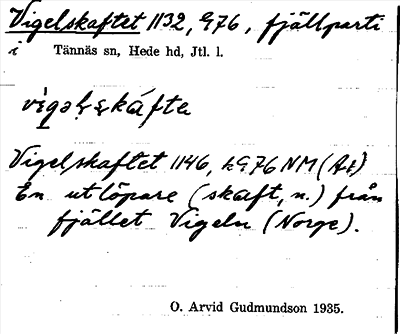 Vigelskaftet 1132, 976, fjällparti
i Tännäs sn, Hede hd, Jtl. l.
Vigelskaftet 1146, 976 NM (A.t)
En utlöpare (skaft, n.) från
fjället Vigeln (Norge).
O. Arvid Gudmundson 1935.